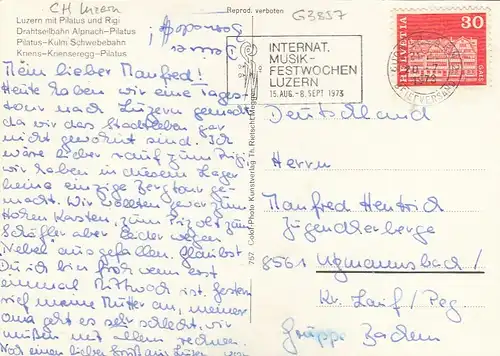 CH Luzern
Reprod. verboten
G3857
Luzern mit Pilatus und Rigi
Drahtseilbahn Alpnach-Pilatus
Pilatus-Kulm Schwebebahn
Kriens-Krienseregg-Pilatus
Mein lieber Manfred!
Heute haben wir eine Tages-
tour nach Luzern gemacht
da wir das Stadtleben gar
nicht gewohnt sind. Ich
wäre lieber auf zum Rigi,
wir haben in diesem Lager
keine einzige Bergtour ge-
macht. Wir wollten zwar zum
Hohen Kasten, zum
Schäfler aber leider wegen
Nebel ausgefallen. Glaubst
Du ich bin froh wenn erst
einmal Mittwoch ist. Gestern
rief meine Mutter an, meiner
oma geht es sehr schlecht, wir
müßen mit allem rechnen.
Noch einen lieben Gruß aus Luzern von
Deiner
757 Color Photo Kunstverlag Th.
INTERNAT.
MUSIK-
FESTWOCHEN
LUZERN
15. AUG. - 8. SEPT 1973
HELVETIA
30
1973
Deutschland
Herrn
Manfred Hentrich
Jugendherberge
8561
Kr. Lauf / Peg.
Gruppe Baden